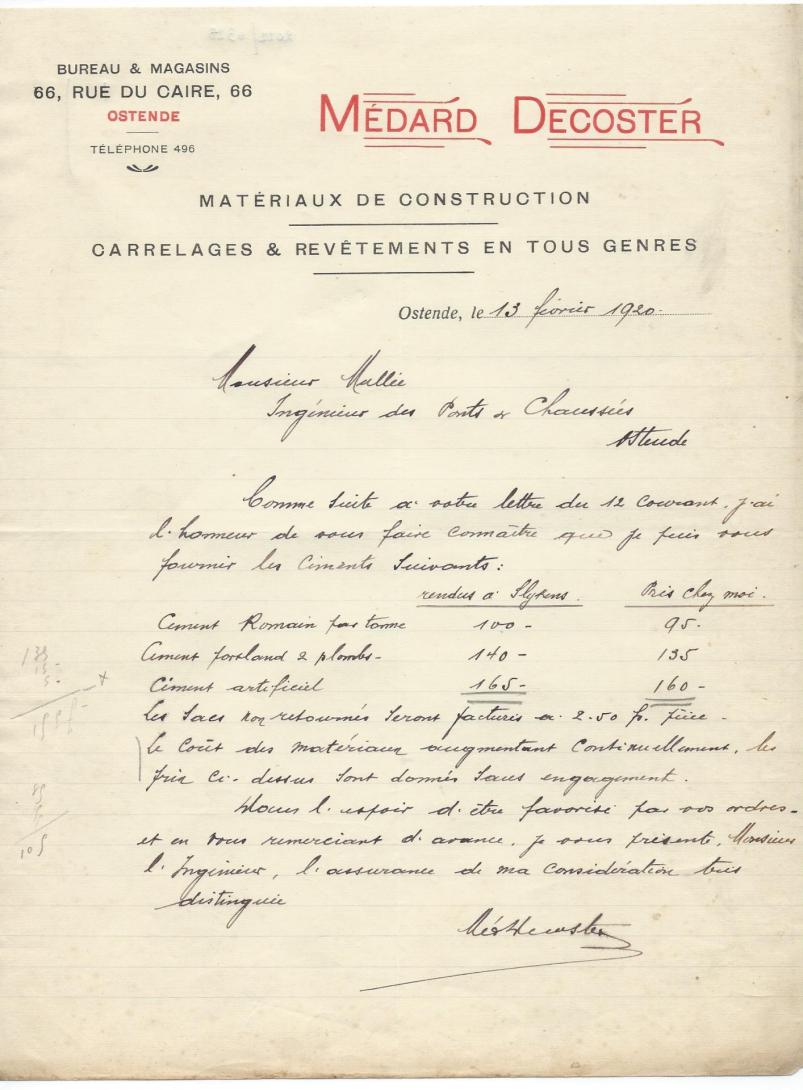 BUREAU & MAGASINS
66, RUE DU CAIRE, 66
OSTENDE
TÉLÉPHONE 496
MÉDARD DECOSTER
MATÉRIAUX DE CONSTRUCTION
CARRELAGES & REVÊTEMENTS EN TOUS GENRES
Ostende, le 13 février 1920.
Monsieur Mallée
Ingénieur des Ponts & Chaussées
Ostende
Comme suite à votre lettre du 12 courant, j'ai
l'honneur de vous faire connaître que je puis vous
fournir les Ciments Suivants :
rendus à Slykens. Pris chez moi.
Ciment Romain par tonne 100 - 95.
Ciment portland 2 plombs - 140 - 135
Ciment artificiel 165 - 160 -
les Sacs non retournés Seront facturés à 2.50 f. pièce.
le Coût des matériaux augmentant Continuellement, les
prix Ci-dessus Sont donnés Sans engagement.
Dans l'espoir d'être favorisé par vos ordres -
et en vous remerciant d'avance, je vous présente, Monsieur
l'Ingénieur, l'assurance de ma Considération très
distinguée
Méd Decoster